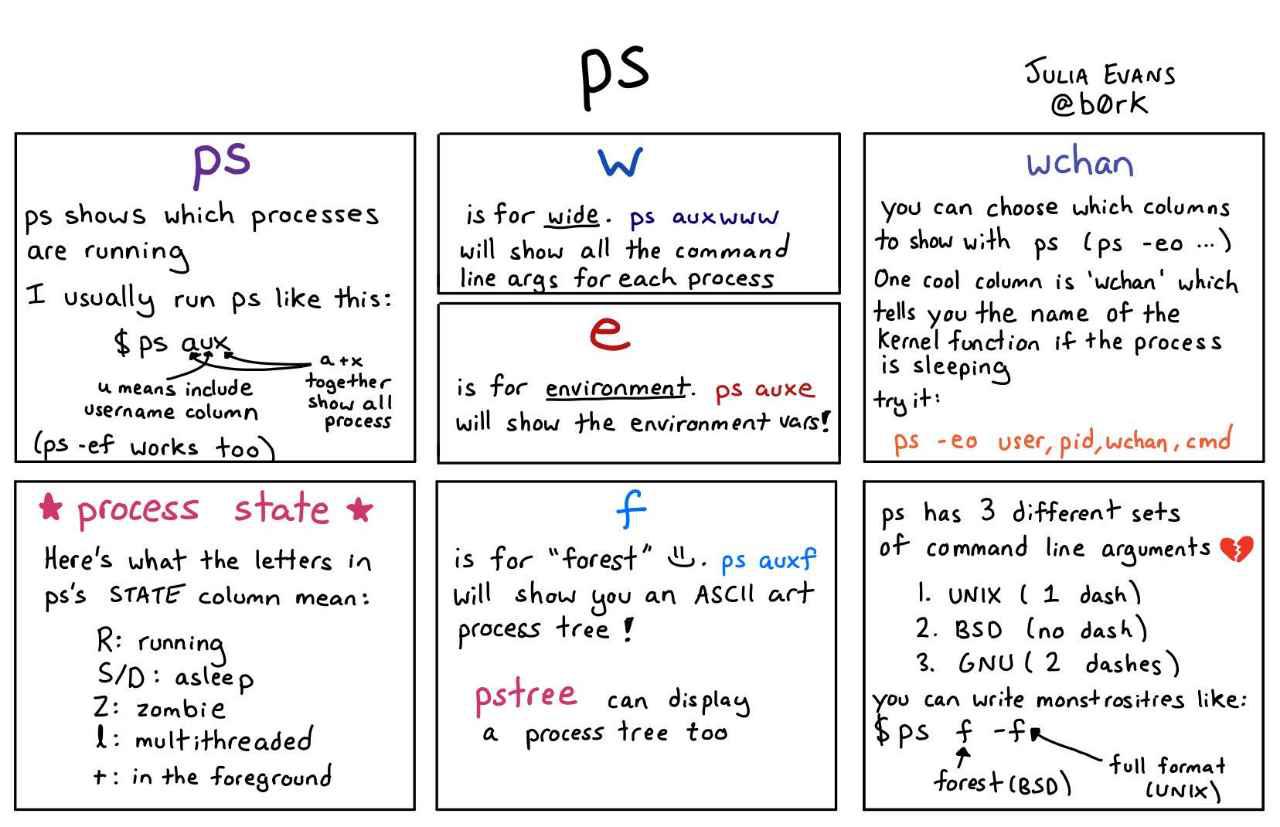 ps
JULIA EVANS
@b0rk
ps
ps shows which processes
are running
I usually run ps like this:
$ ps aux
u means include
username column
a+x
together
show all
process
(ps -ef works too)
w
is for wide. ps auxwww
will show all the command
line args for each process
e
is for environment. ps auxe
will show the environment vars!
wchan
you can choose which columns
to show with ps (ps -eo ...)
One cool column is 'wchan' which
tells you the name of the
kernel function if the process
is sleeping
try it:
ps -eo user, pid, wchan, cmd
★ process state ★
Here's what the letters in
ps's STATE column mean:
R: running
S/D: asleep
Z: zombie
l: multithreaded
+: in the foreground
f
is for "forest" . ps auxf
will show you an ASCII art
process tree!
pstree can display
a process tree too
ps has 3 different sets
of command line arguments 💔
1. UNIX (1 dash)
2. BSD (no dash)
3. GNU (2 dashes)
you can write monstrositres like:
$ ps f -f
forest (BSD)
full format
(UNIX)